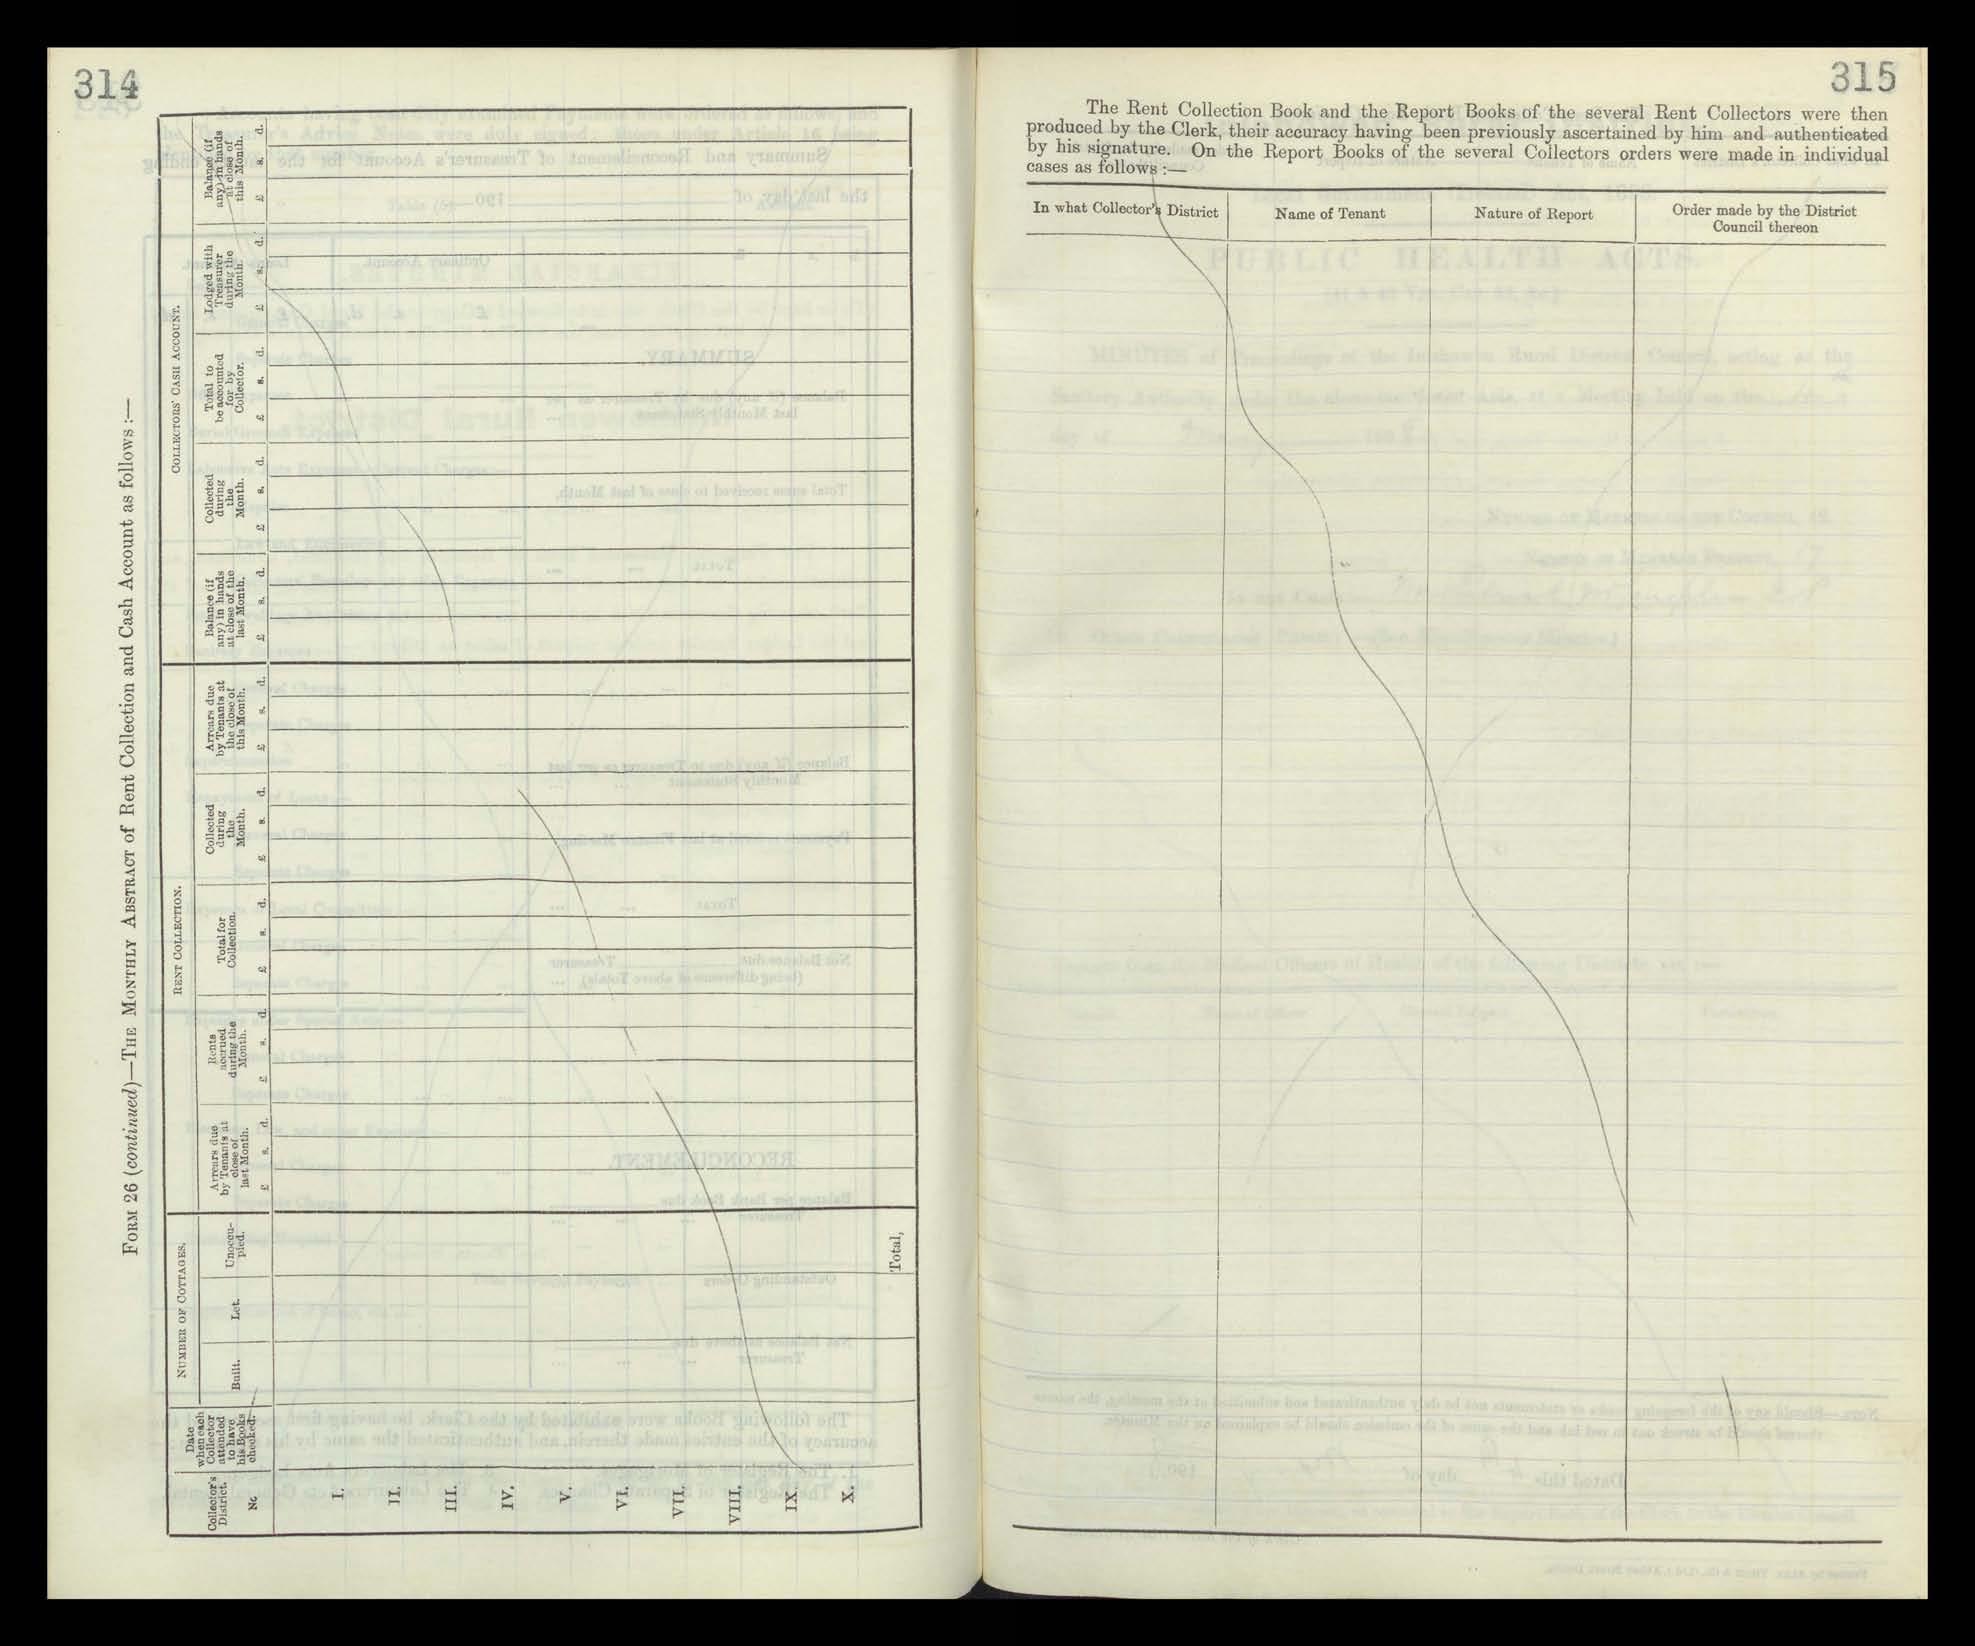 314
FORM 26 (continued)—THE MONTHLY ABSTRACT of Rent Collection and Cash Account as follows :—
Collector's
District.
No
Date
when each
Collector
attended
to have
his Books
checked.
NUMBER OF COTTAGES.
Built.
Let.
Unoccu-
pied.
RENT COLLECTION.
Arrears due
by Tenants at
close of
last Month.
£ s. d.
Rents
accrued
during the
Month.
£ s. d.
Total for
Collection.
£ s. d.
Collected
during
the
Month.
£ s. d.
Arrears due
by Tenants at
the close of
this Month.
£ s. d.
COLLECTORS' CASH ACCOUNT.
Balance (if
any) in hands
at close of the
last Month.
£ s. d.
Collected
during
the
Month.
£ s. d.
Total to
be accounted
for by
Collector.
£ s. d.
Lodged with
Treasurer
during the
Month.
£ s. d.
Balance (if
any) in hands
at close of
this Month.
£ s. d.
I.
II.
III.
IV.
V.
VI.
VII.
VIII.
IX.
X.
Total,
315
The Rent Collection Book and the Report Books of the several Rent Collectors were then
produced by the Clerk, their accuracy having been previously ascertained by him and authenticated
by his signature. On the Report Books of the several Collectors orders were made in individual
cases as follows :—
In what Collector's District
Name of Tenant
Nature of Report
Order made by the District
Council thereon